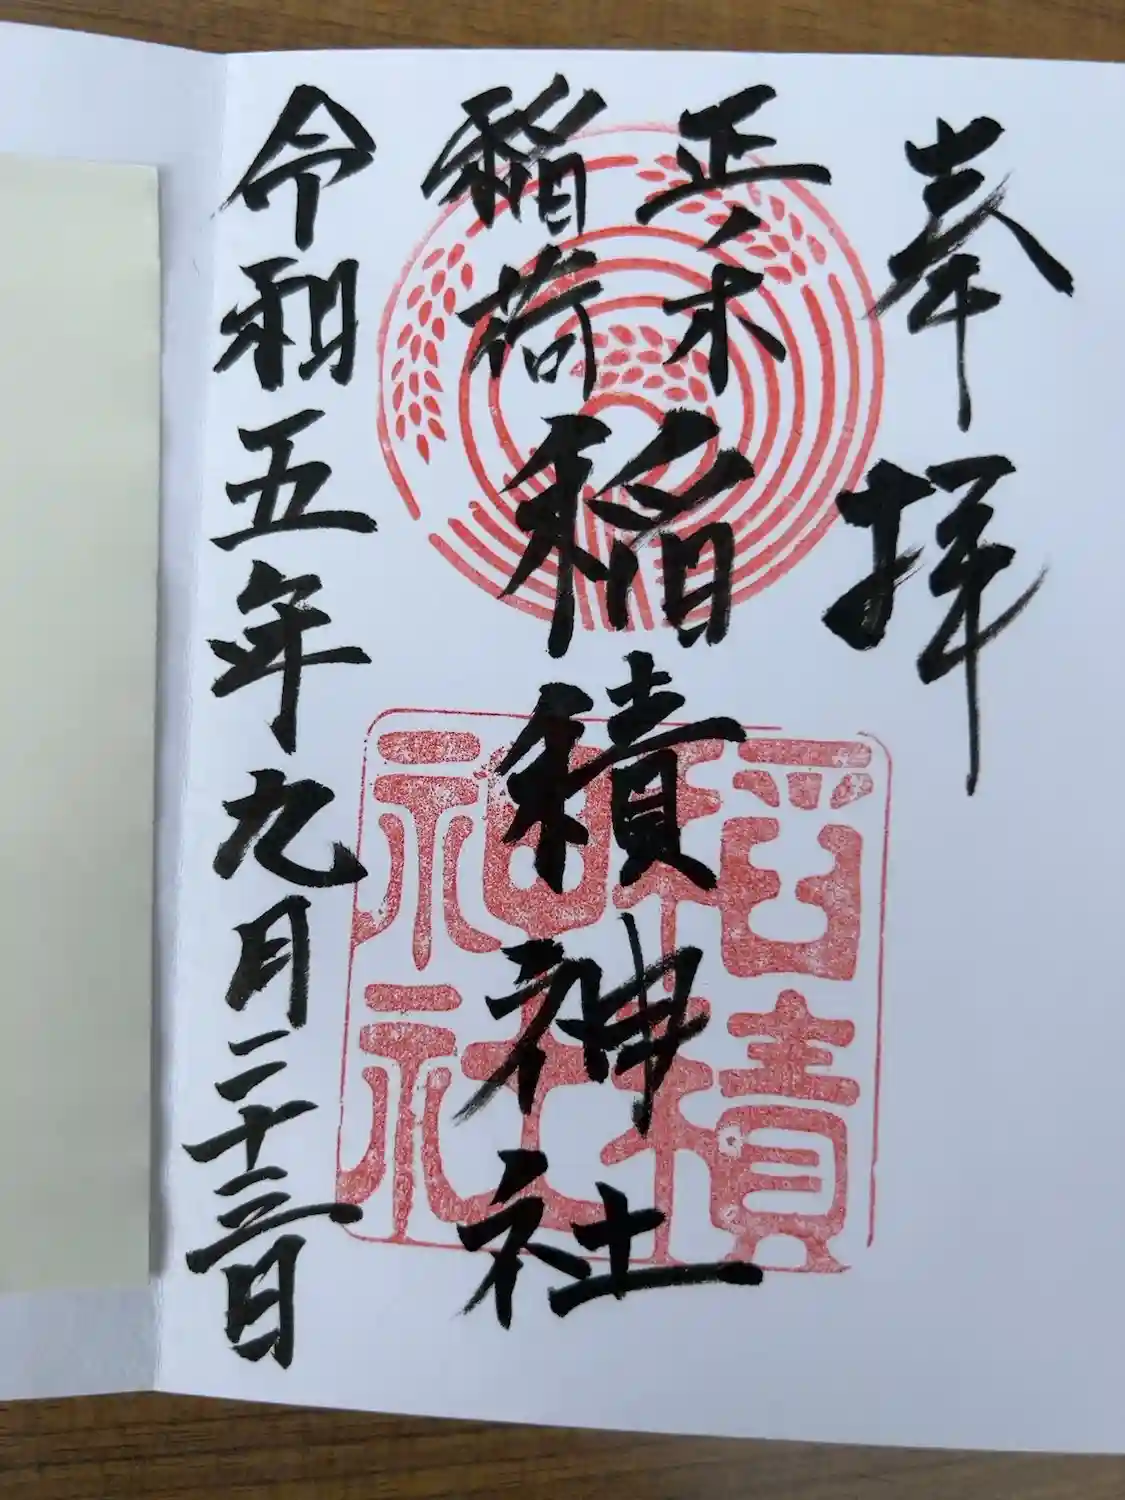 奉拝
正ノ木
稲荷
稲積神社
令和五年九月二十三日
稲積
神社